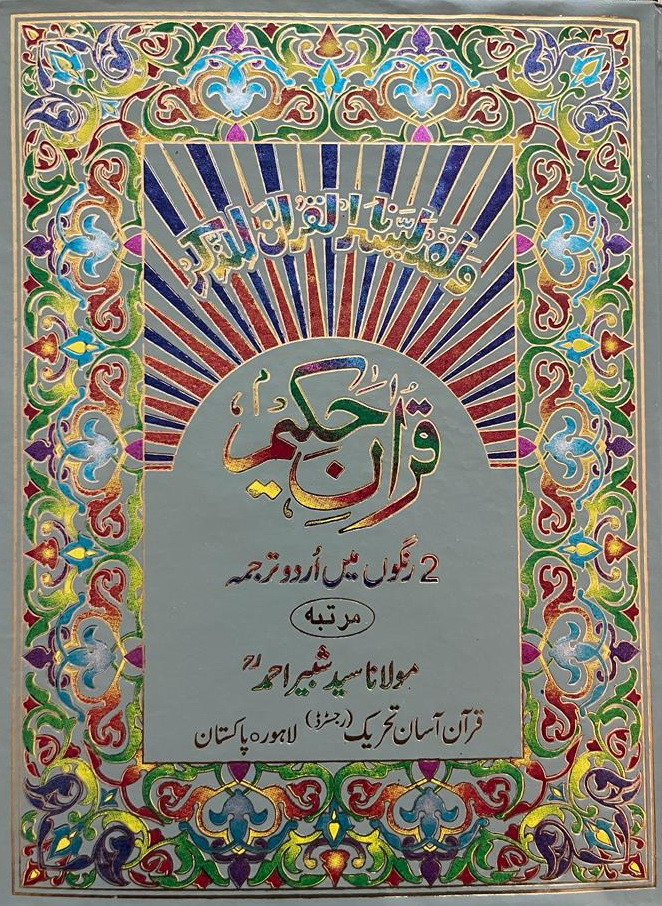 وَلَقَدْ يَسَّرْنَا الْقُرْآنَ لِلذِّكْرِ
قُرآنِ حکیم
2 رنگوں میں اُردو ترجمہ
مرتبہ
مولانا سید شبیر احمدؒ
قرآن آسان تحریک (رجسٹرڈ) لاہور ٥ پاکستان